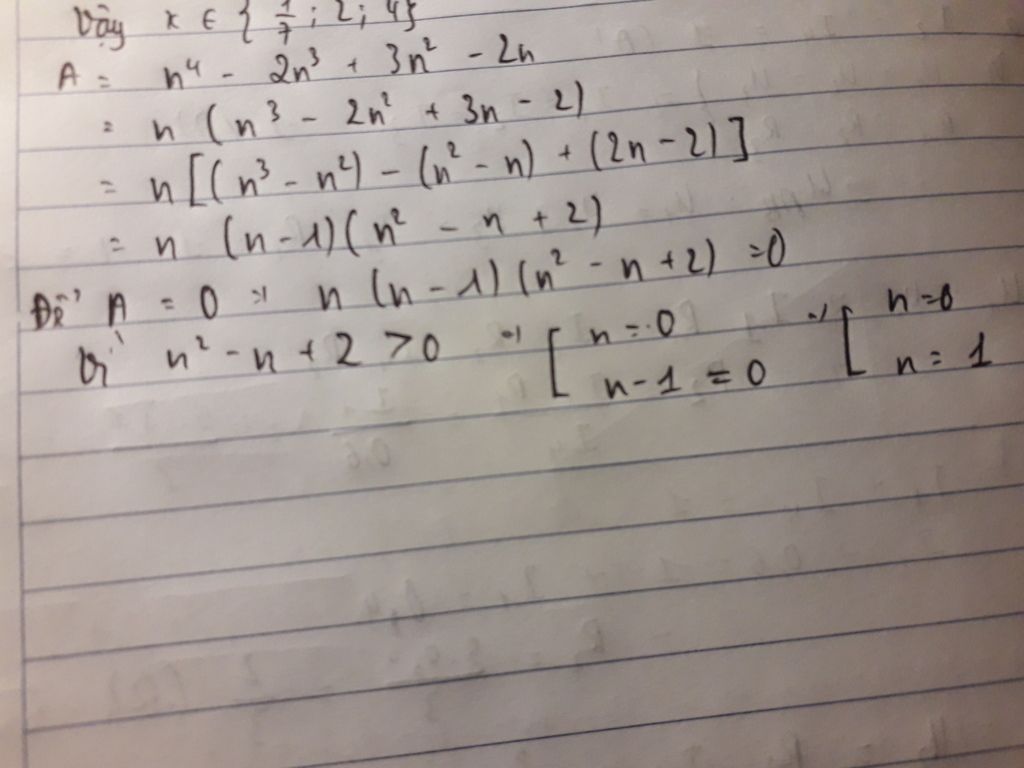 Vậy x ∈ { 1/7 ; 2 ; 4 }
A = n⁴ - 2n³ + 3n² - 2n
= n (n³ - 2n² + 3n - 2)
= n [(n³ - n²) - (n² - n) + (2n - 2)]
= n (n - 1)(n² - n + 2)
Để A = 0 => n (n - 1)(n² - n + 2) = 0
Vì n² - n + 2 > 0 => [ n = 0 => [ n = 0
n - 1 = 0 n = 1